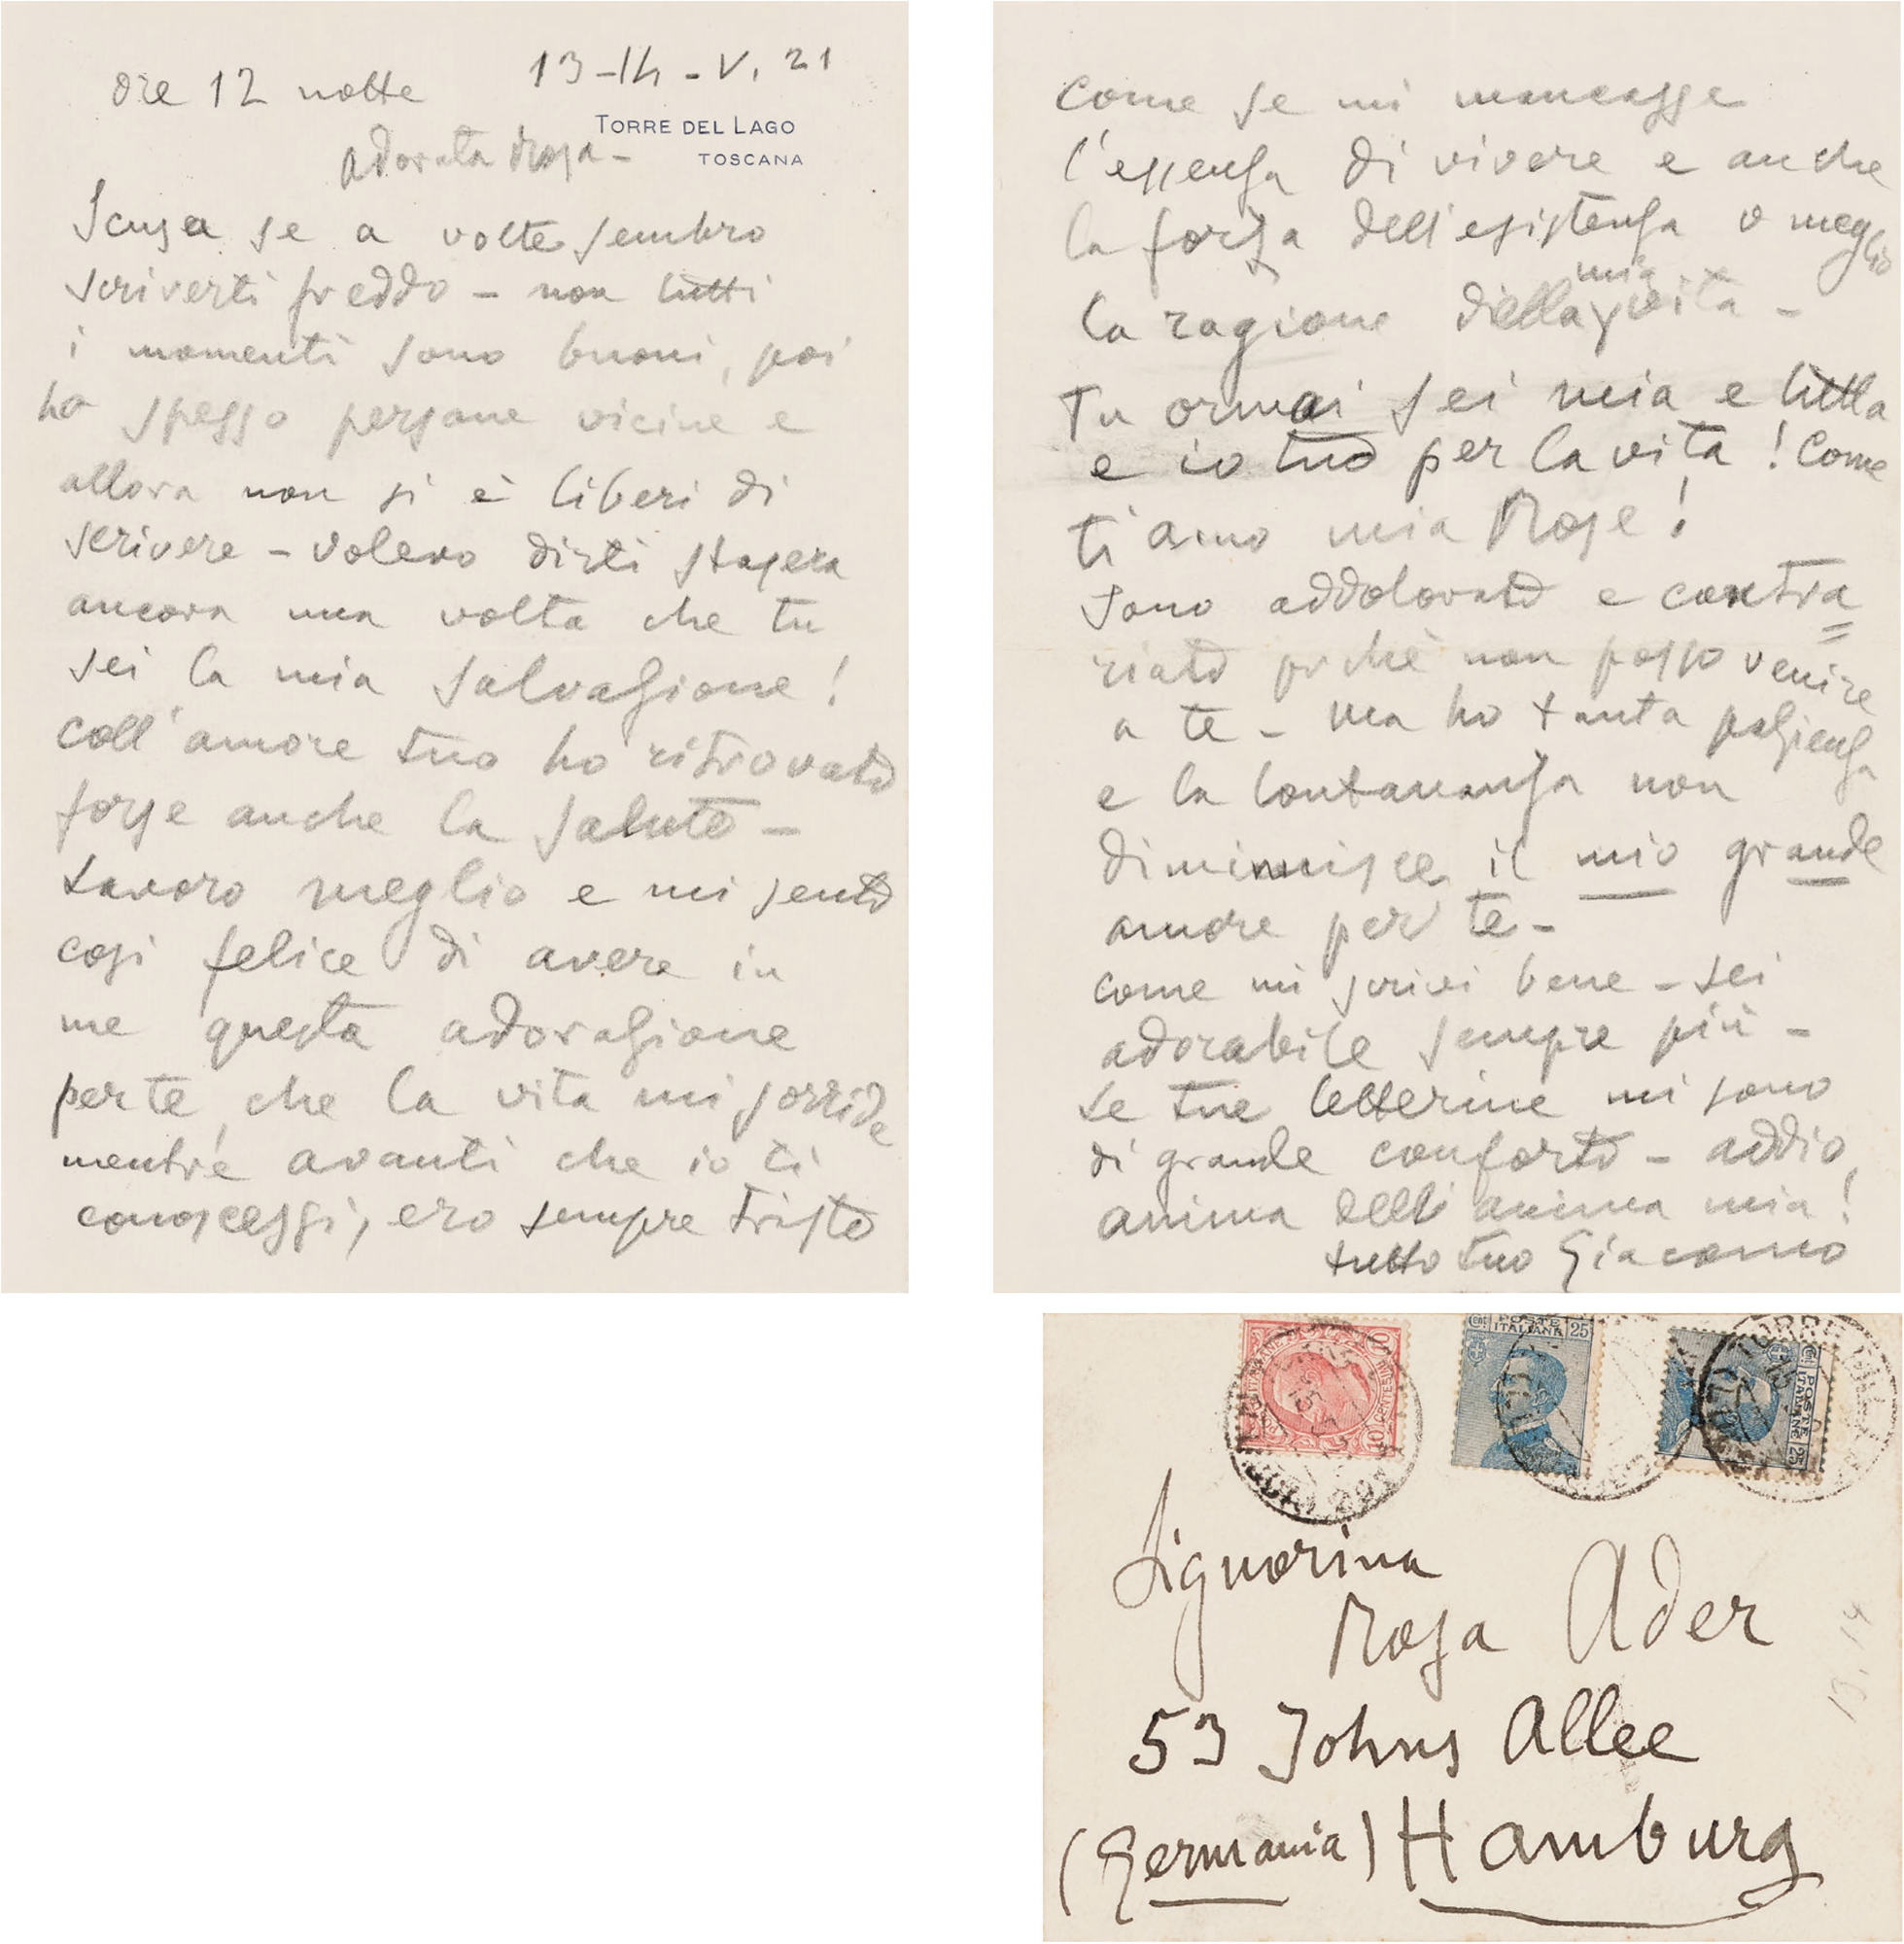 ore 12 notte 13-14-V. 21
TORRE DEL LAGO
TOSCANA
Adorata Rosa -
Scusa se a volte sembro
scriverti freddo - non tutti
i momenti sono buoni, poi
ho spesso persone vicine e
allora non si è liberi di
scrivere - volevo dirti stasera
ancora una volta che tu
sei la mia salvazione!
coll'amore tuo ho ritrovato
forse anche la salute -
lavoro meglio e mi sento
così felice di avere in
me questa adorazione
per te, che la vita mi sorride
mentre avanti che io ti
conoscessi, ero sempre triste
come se mi mancasse
l'essenza di vivere e anche
la forza dell'esistenza o meglio
la ragione della mia vita -
Tu ormai sei mia e tutta
e io tuo per la vita! Come
ti amo mia Rose!
Sono addolorato e contra=
riato perchè non posso venire
a te - ma ho tanta pazienza
e la lontananza non
diminuisce il mio grande
amore per te -
come mi scrivi bene - sei
adorabile sempre più -
le tue letterine mi sono
di grande conforto - addio,
anima dell'anima mia!
tutto tuo Giacomo
POSTE ITALIANE
CENTESIMI 10
POSTE
ITALIANE 25
POSTE
ITALIANE 25
Signorina
Rosa Ader
53 Johns Allee
(Germania) Hamburg
13. 14